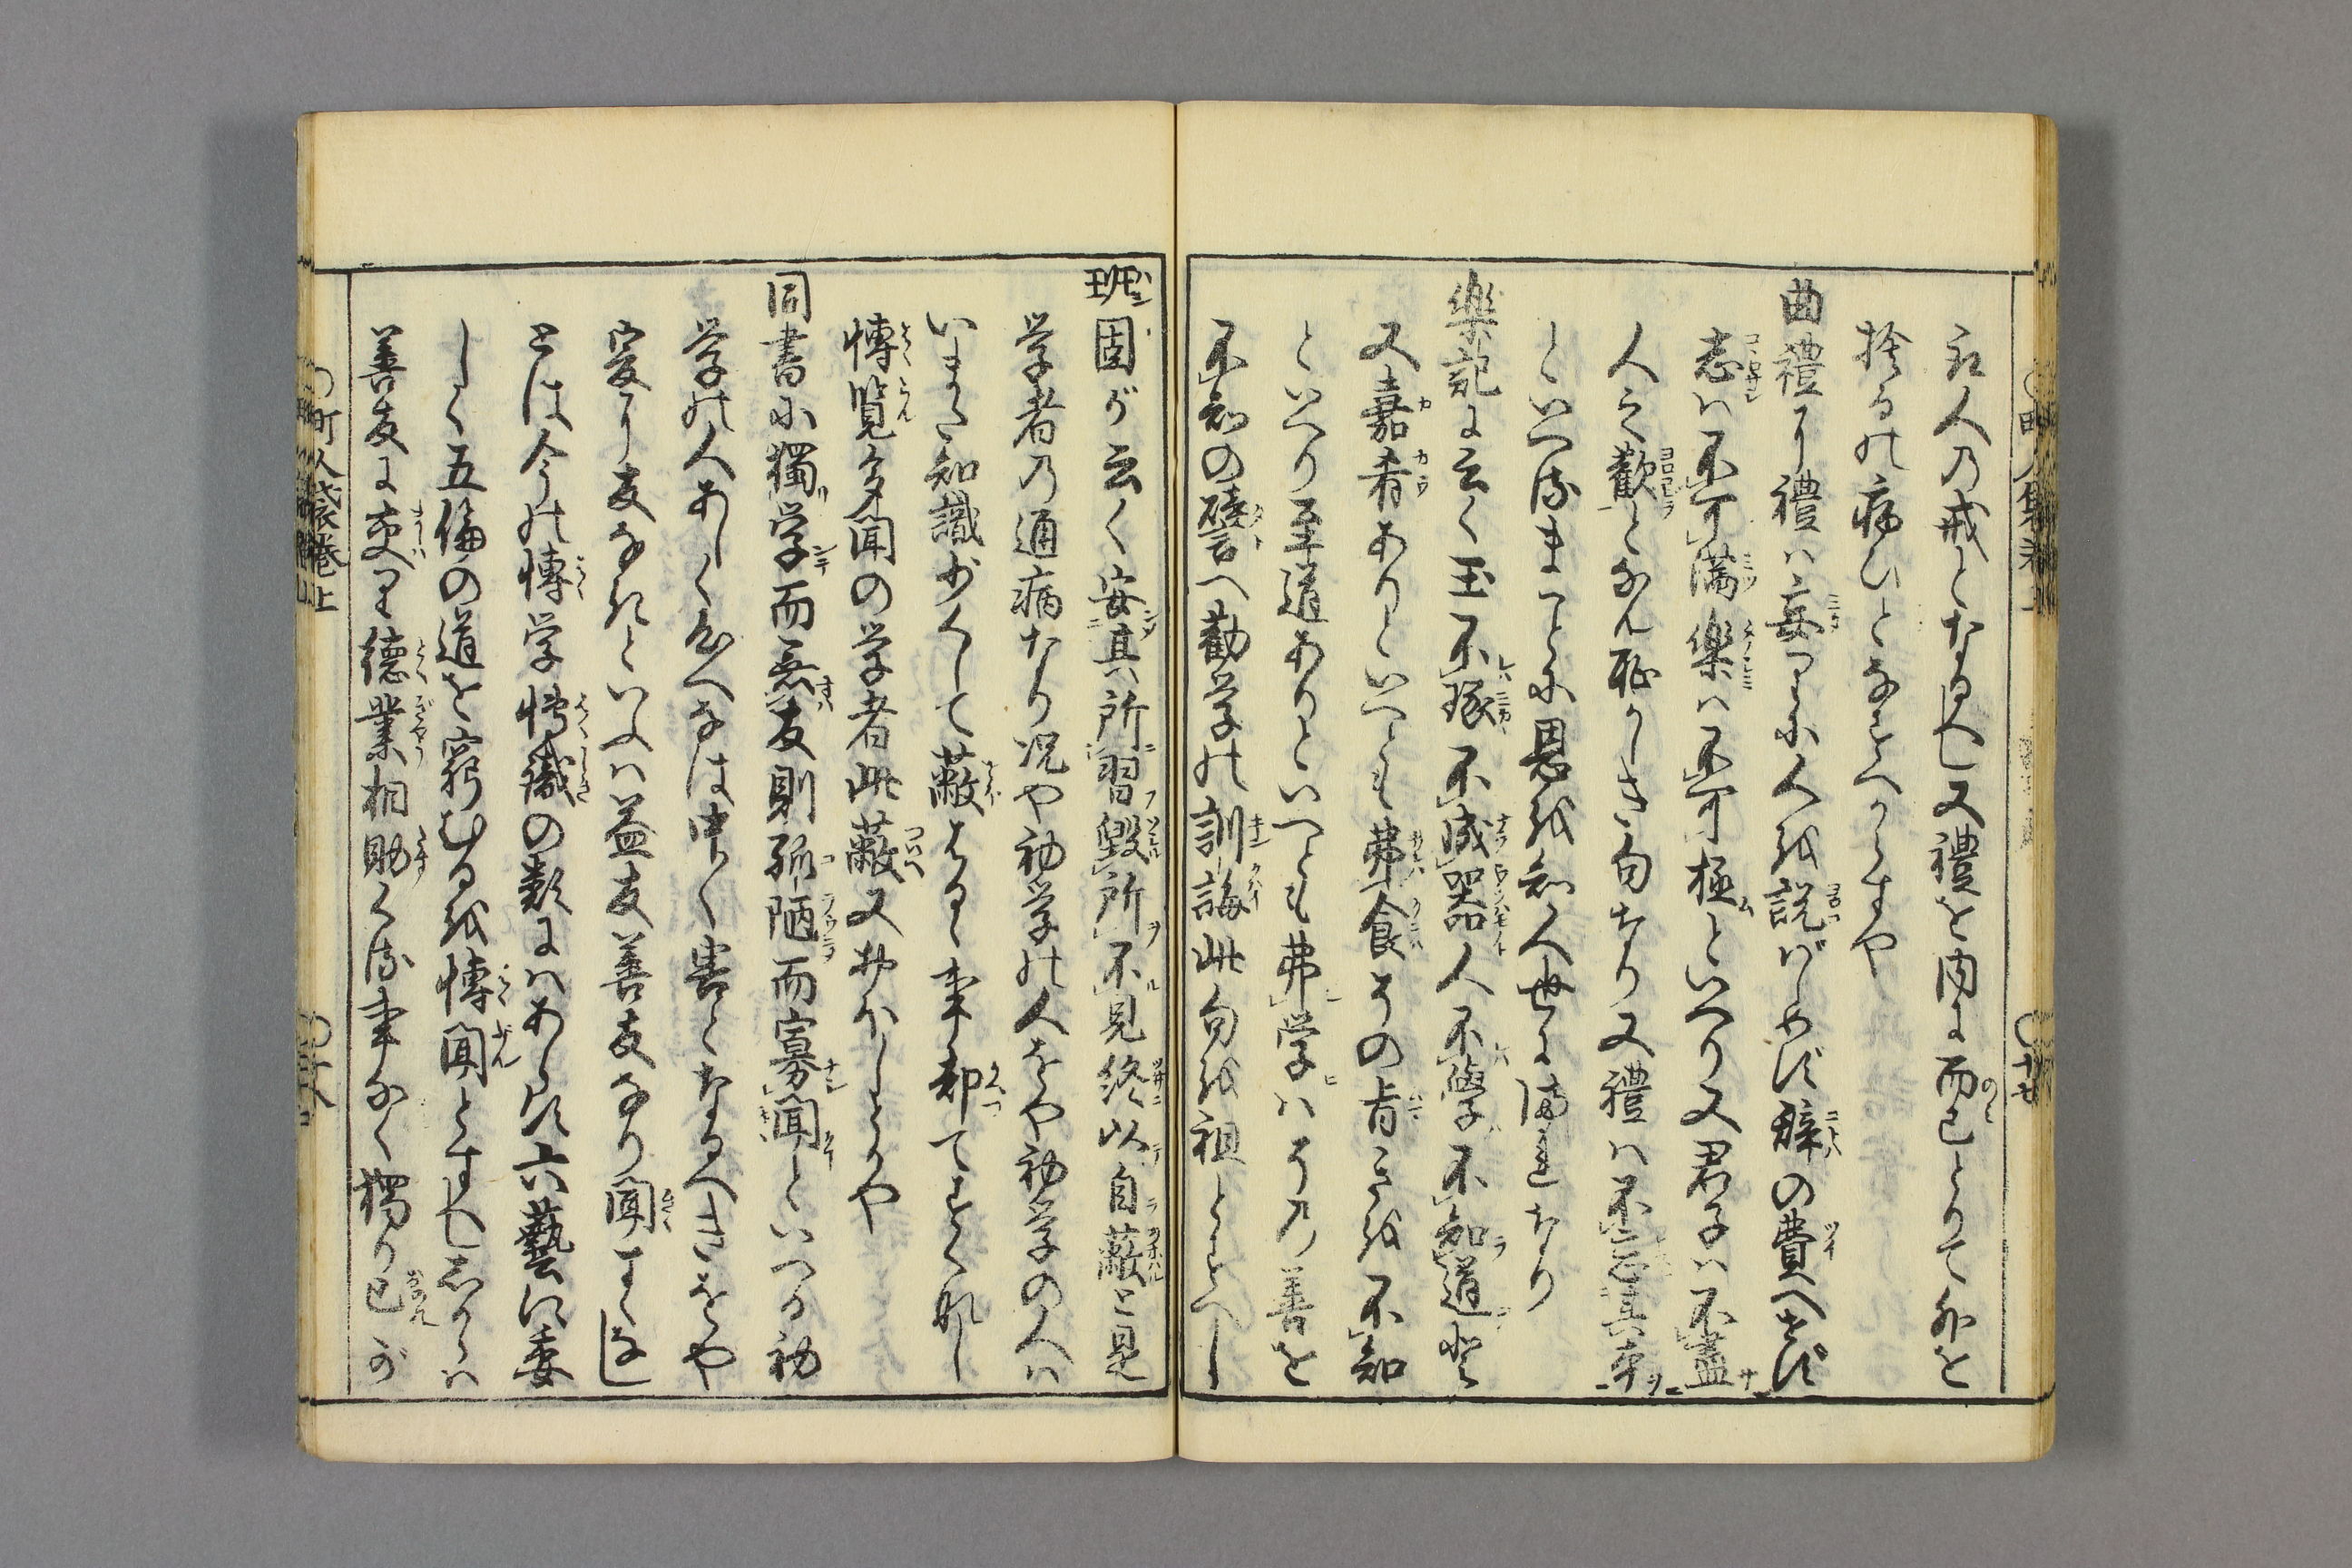 れ人乃戒となるへし又禮を内に而已とりて外を
捨るは病ひとなすへからすや
曲禮に禮ハ妄りに人を説ばしめず辭の費へせず
志ハ不可満樂ハ不可極といへり又君子ハ不盡
人之歡となん恥かしき句なり又禮ハ不忘其本
といへるまことに恩を知人世に稀なり
樂記に云く玉不琢不成器人不學不知道と
又嘉肴ありといへとも弗食その旨きを不知
といへり至道ありといへとも弗学ハその善を
不知の譬へ勸学の訓誨此句を祖とすへし
班固が云く安其所習毀所不見終以自蔽と是
学者乃通病なり况や初学の人をや初学の人ハ
いまた知識少くして蔽はるゝ事却てすくなし
博覧多聞の学者此蔽又おほしとかや
同書に獨学而無友則孤陋而寡聞といへる初
学の人あしく心へなは中く害となるへきをや
爰に友なきといふハ益友善友なり聞すくなし
とは今の博学博識の類にハあらす六藝に委
しく五倫の道を窮むるを博聞とすへししからハ
善友に交りて德業相助くる事なく獨り己が
町人袋巻上